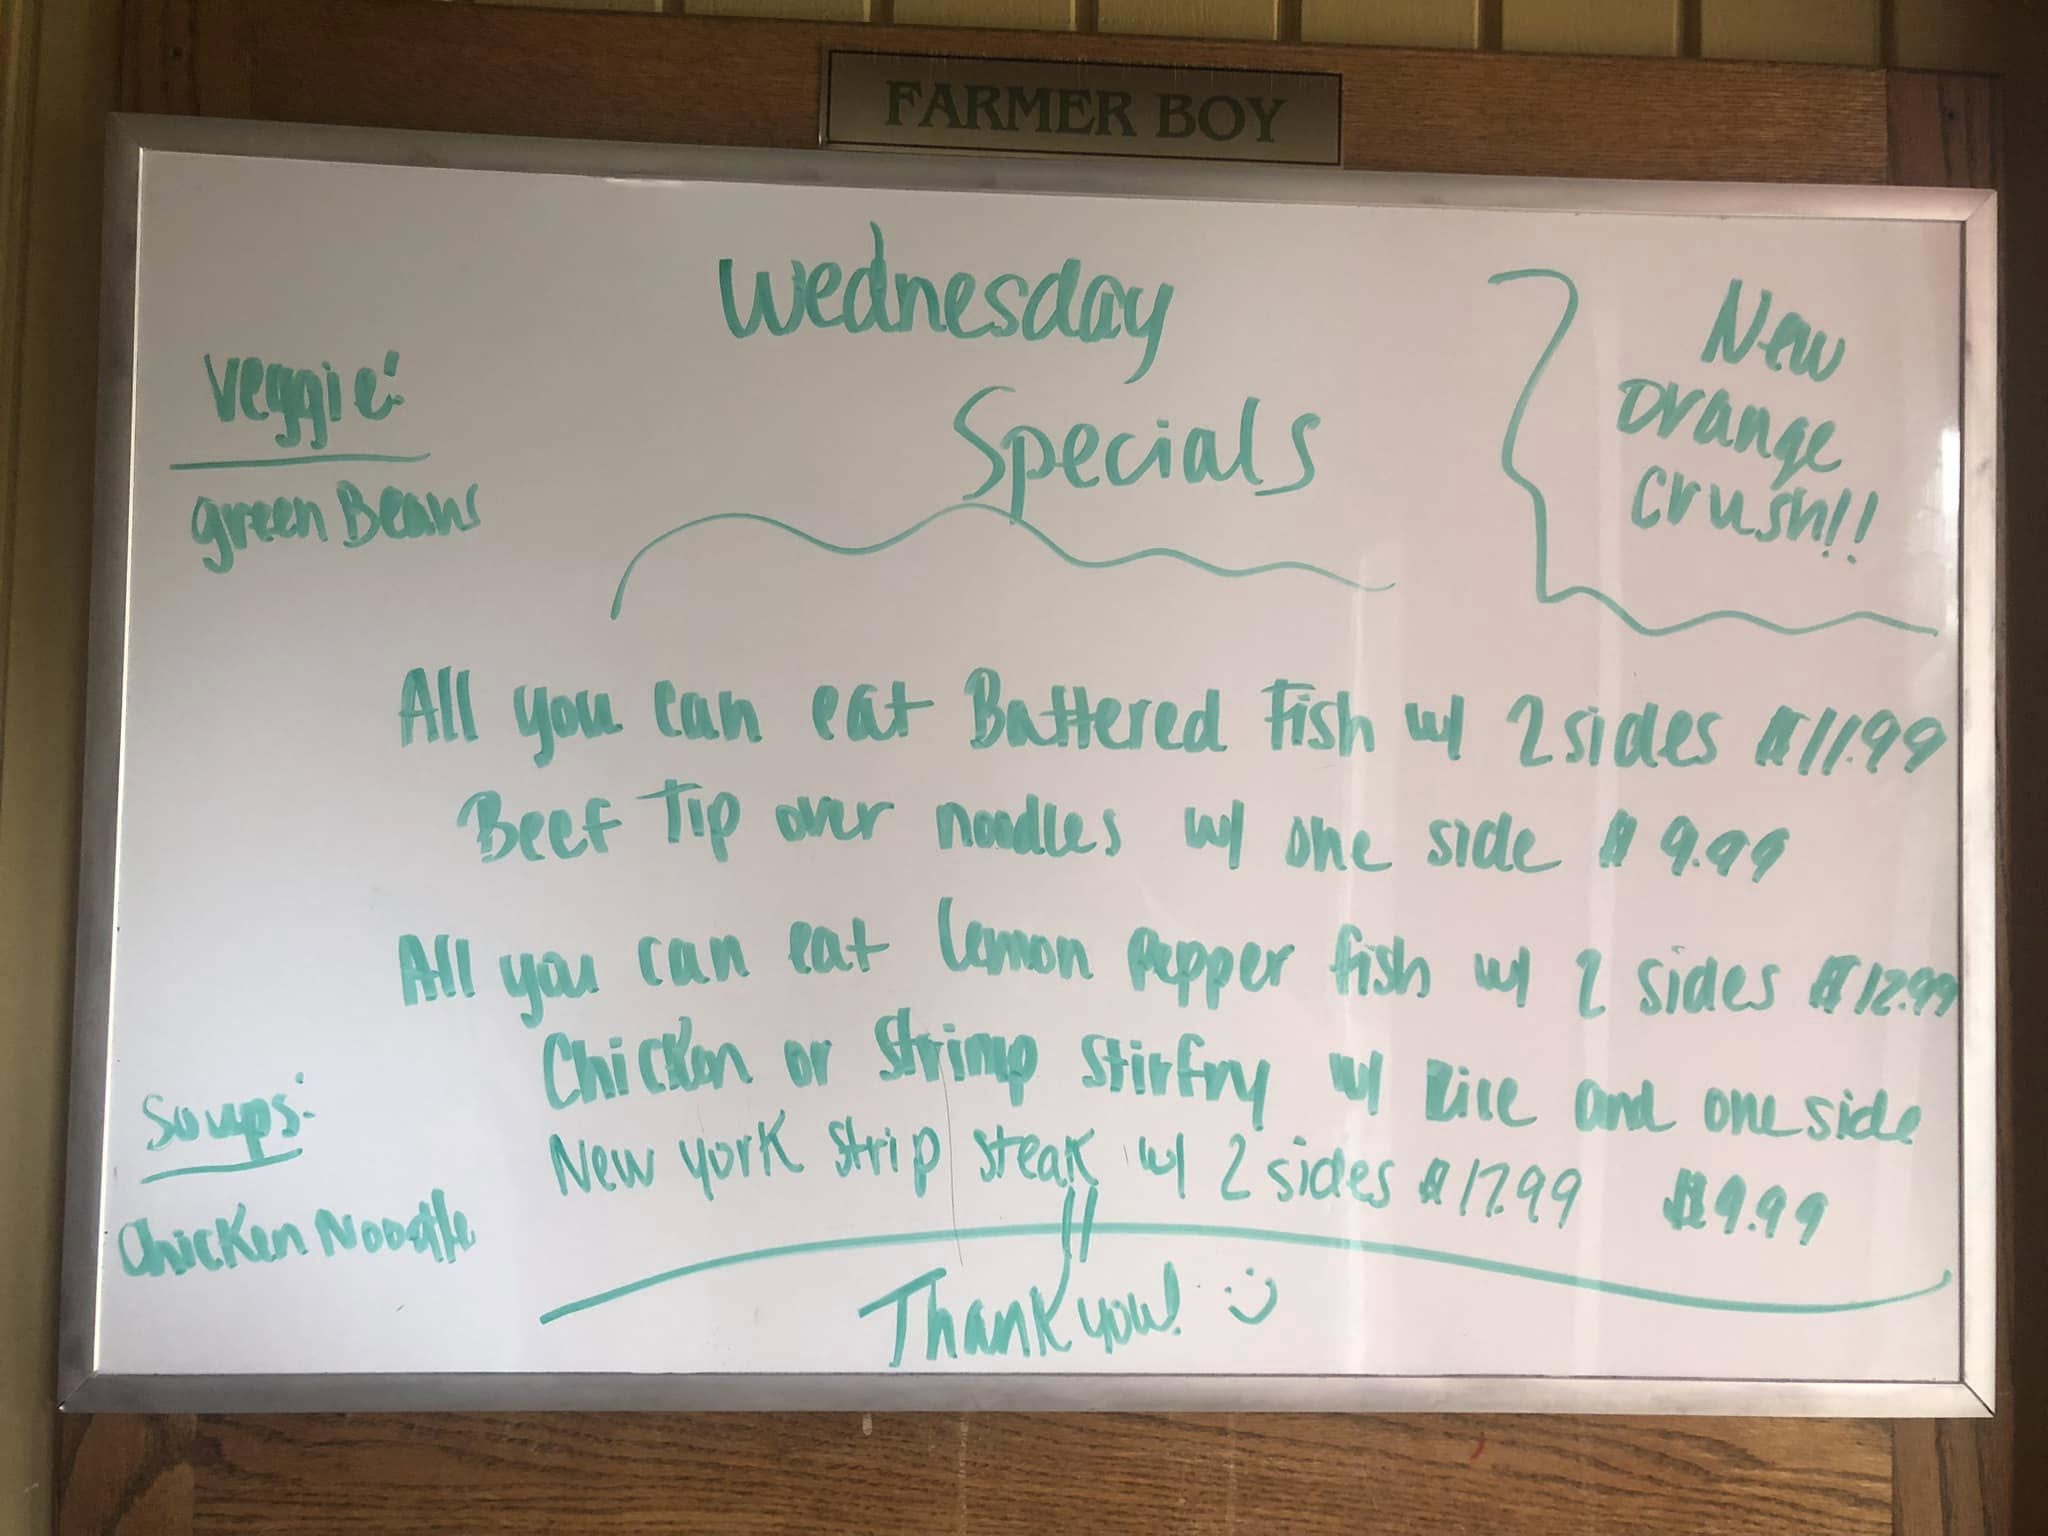 FARMER BOY
Wednesday
Specials
Veggie:
green Beans
New
orange
crush!!
All you can eat Battered Fish w/ 2 sides $11.99
Beef Tip over noodles w/ one side $9.99
All you can eat lemon pepper fish w/ 2 sides $12.99
Chicken or Shrimp stirfry w/ Rice and one side
$9.99
New york strip steak w/ 2 sides $17.99
Soups:
Chicken Noodle
Thank you!